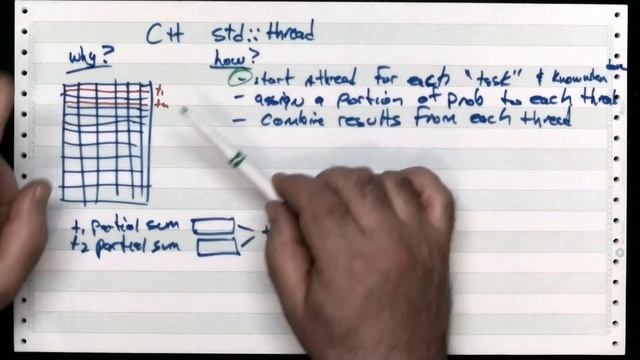 C++ std::thread
why?
how?
- start thread for each "task" & know when done
- assign a portion of prob to each thread
- combine results from each thread
t1
tn
t1 partial sum
t2 partial sum
+